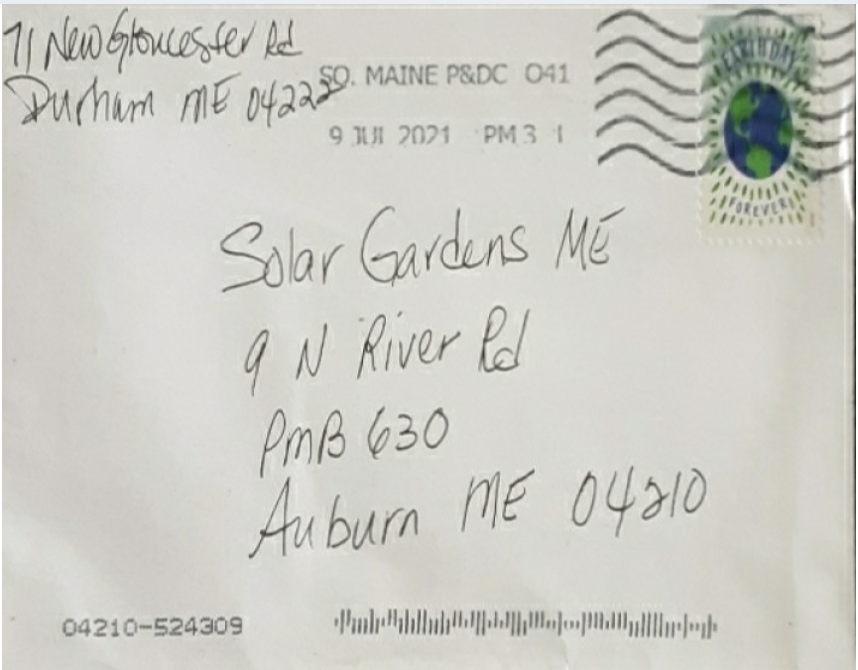 71 New Gloucester Rd
Durham ME 04222
SO. MAINE P&DC 041
9 JUL 2021 PM 3 1
EARTH DAY
FOREVER
Solar Gardens ME
9 N River Rd
PMB 630
Auburn ME 04210
04210-524309